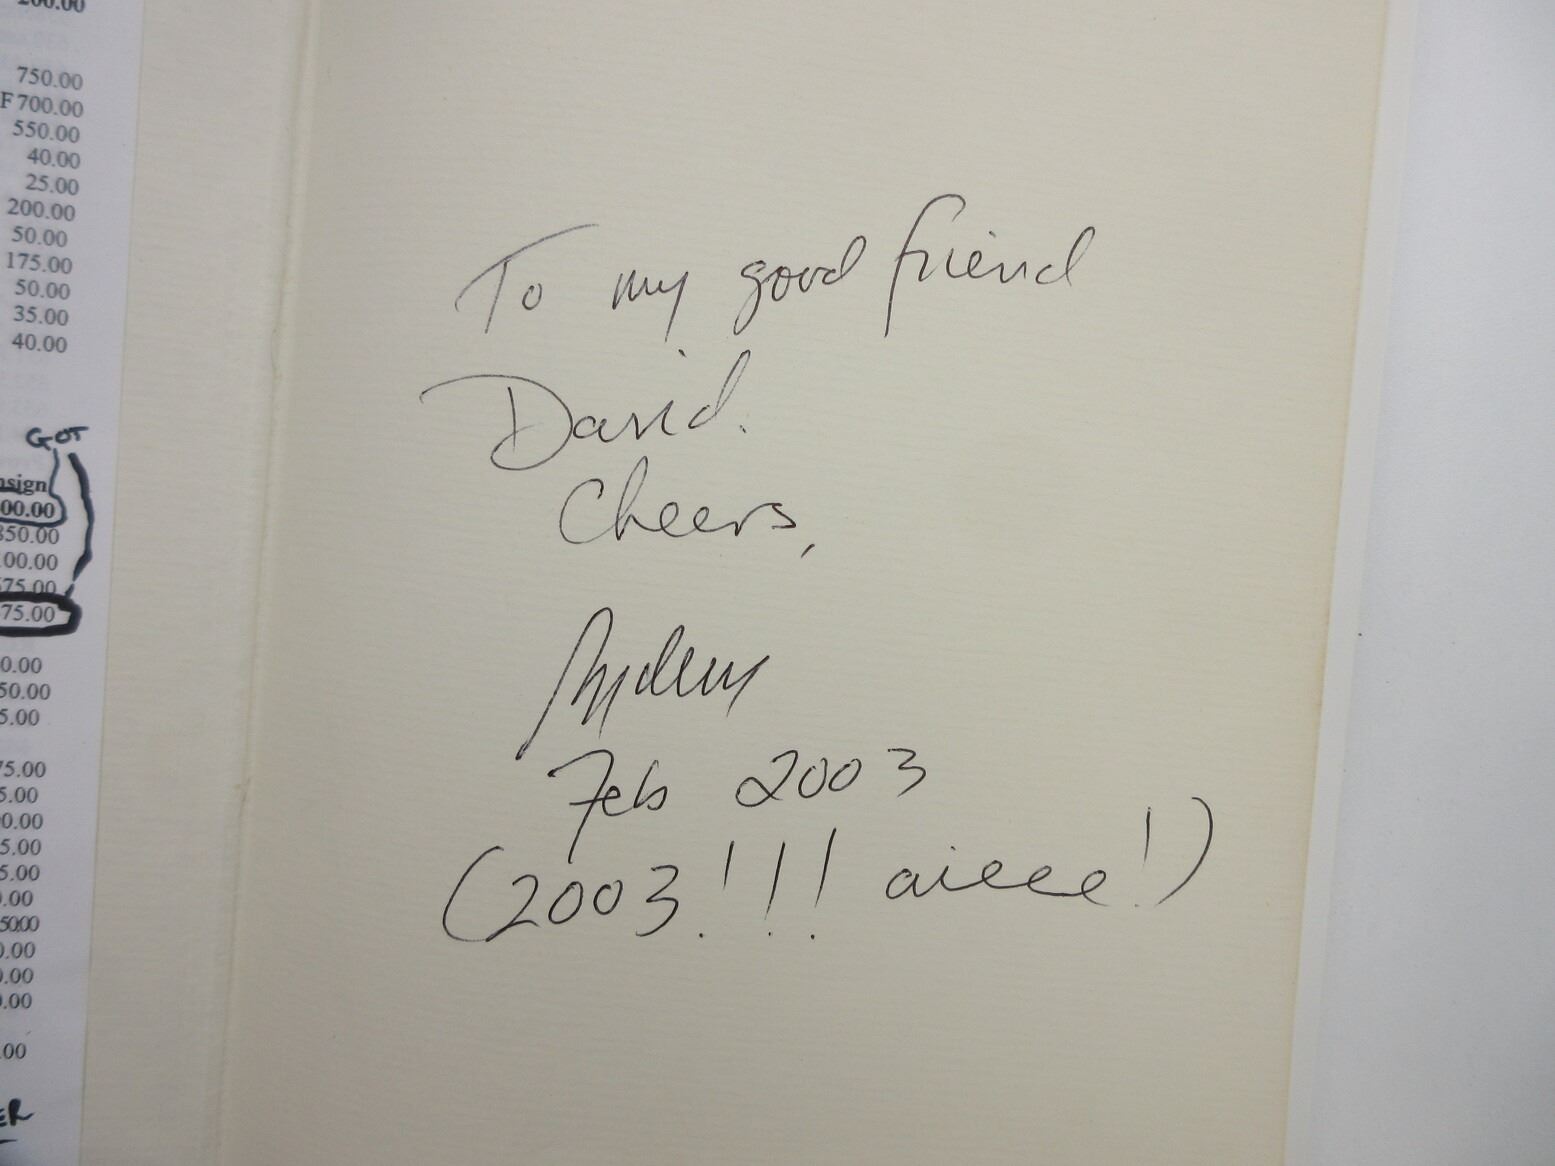 200.00
750.00
F 700.00
550.00
40.00
25.00
200.00
50.00
175.00
50.00
35.00
40.00
GOT
nsign
00.00
850.00
00.00
575.00
75.00
0.00
50.00
5.00
75.00
5.00
0.00
5.00
5.00
0.00
5000
0.00
0.00
0.00
.00
ER
To my good friend
David.
Cheers,
Feb 2003
(2003!!! aieee!)